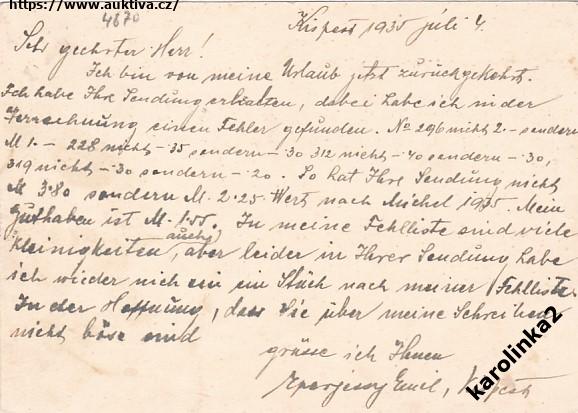 https://www.auktiva.cz/
4670
Kispest 1935 júli 4.
Sehr geehrter Herr!
Ich bin von meine Urlaub jetzt zurückgekehrt.
Ich habe Ihre Sendung erhalten, dabei habe ich in der
Verrechnung einen Fehler gefunden. No 296 nicht 2.- sondern
M 1.- 228 nicht -35 sondern -30 312 nicht -40 sondern -30,
319 nicht -30 sondern -20. So hat Ihre Sendung nicht
M 3.80 sondern M. 2.25 Wert nach Michel 1935. Mein
Guthaben ist M. 1.55. In meine Fehlliste sind viele
Kleinigkeiten, auch, aber leider in Ihrer Sendung habe
ich wieder nich ein in Stück nach meiner Fehlliste.
In der Hoffnung, dass Sie über meine Schreiben
nicht böse sind
grüsse ich Ihnen
Emil,
karolinka2